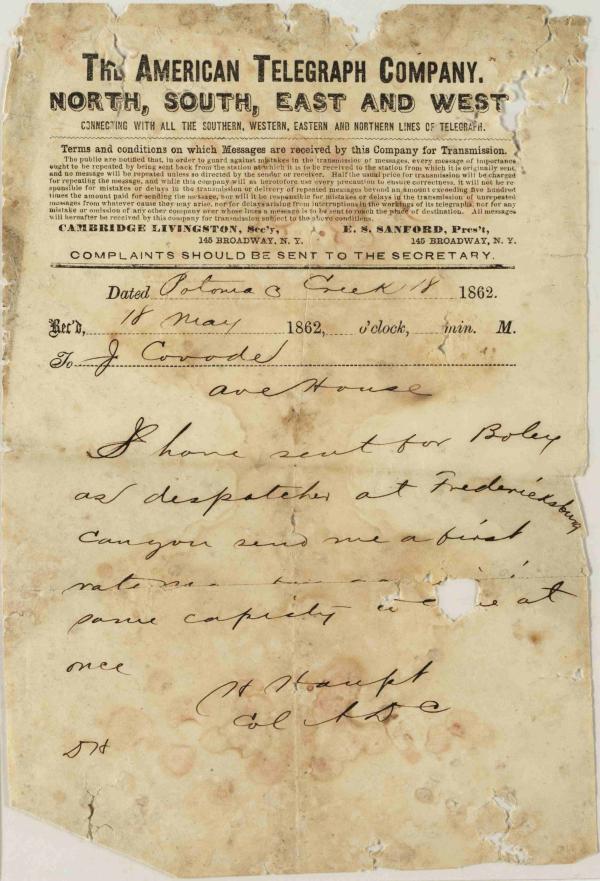 THE AMERICAN TELEGRAPH COMPANY.
NORTH, SOUTH, EAST AND WEST
CONNECTING WITH ALL THE SOUTHERN, WESTERN, EASTERN AND NORTHERN LINES OF TELEGRAPH.
Terms and conditions on which Messages are received by this Company for Transmission.
The public are notified, that, in order to guard against mistakes in the transmission of messages, every message of importance
ought to be repeated by being sent back from the station at which it is to be received to the station from which it is originally sent,
and no message will be repeated unless so directed by the sender or receiver. Half the usual price for transmission will be charged
for repeating the message, and while this company will as heretofore use every precaution to ensure correctness, it will not be re-
sponsible for mistakes or delays in the transmission or delivery of repeated messages beyond an amount exceeding five hundred
times the amount paid for sending the message, nor will it be responsible for mistakes or delays in the transmission of unrepeated
messages from whatever cause they may arise, nor for delays arising from interruptions in the workings of its telegraphs, nor for any
mistake or omission of any other company over whose lines a message is to be sent to reach the place of destination. All messages
will hereafter be received by this company for transmission subject to the above conditions.
CAMBRIDGE LIVINGSTON, Sec'y, E. S. SANFORD, Pres't,
145 BROADWAY, N. Y. 145 BROADWAY, N. Y.
COMPLAINTS SHOULD BE SENT TO THE SECRETARY.
Dated Potomac Creek 18 1862.
Rec'd, 18 May 1862, o'clock, min. M.
To J Covode
Ave House
I have sent for Boley
as despatcher at Fredericksburg
Can you send me a first
rate
same capacity at
once
H Haupt
Col A D C
DH